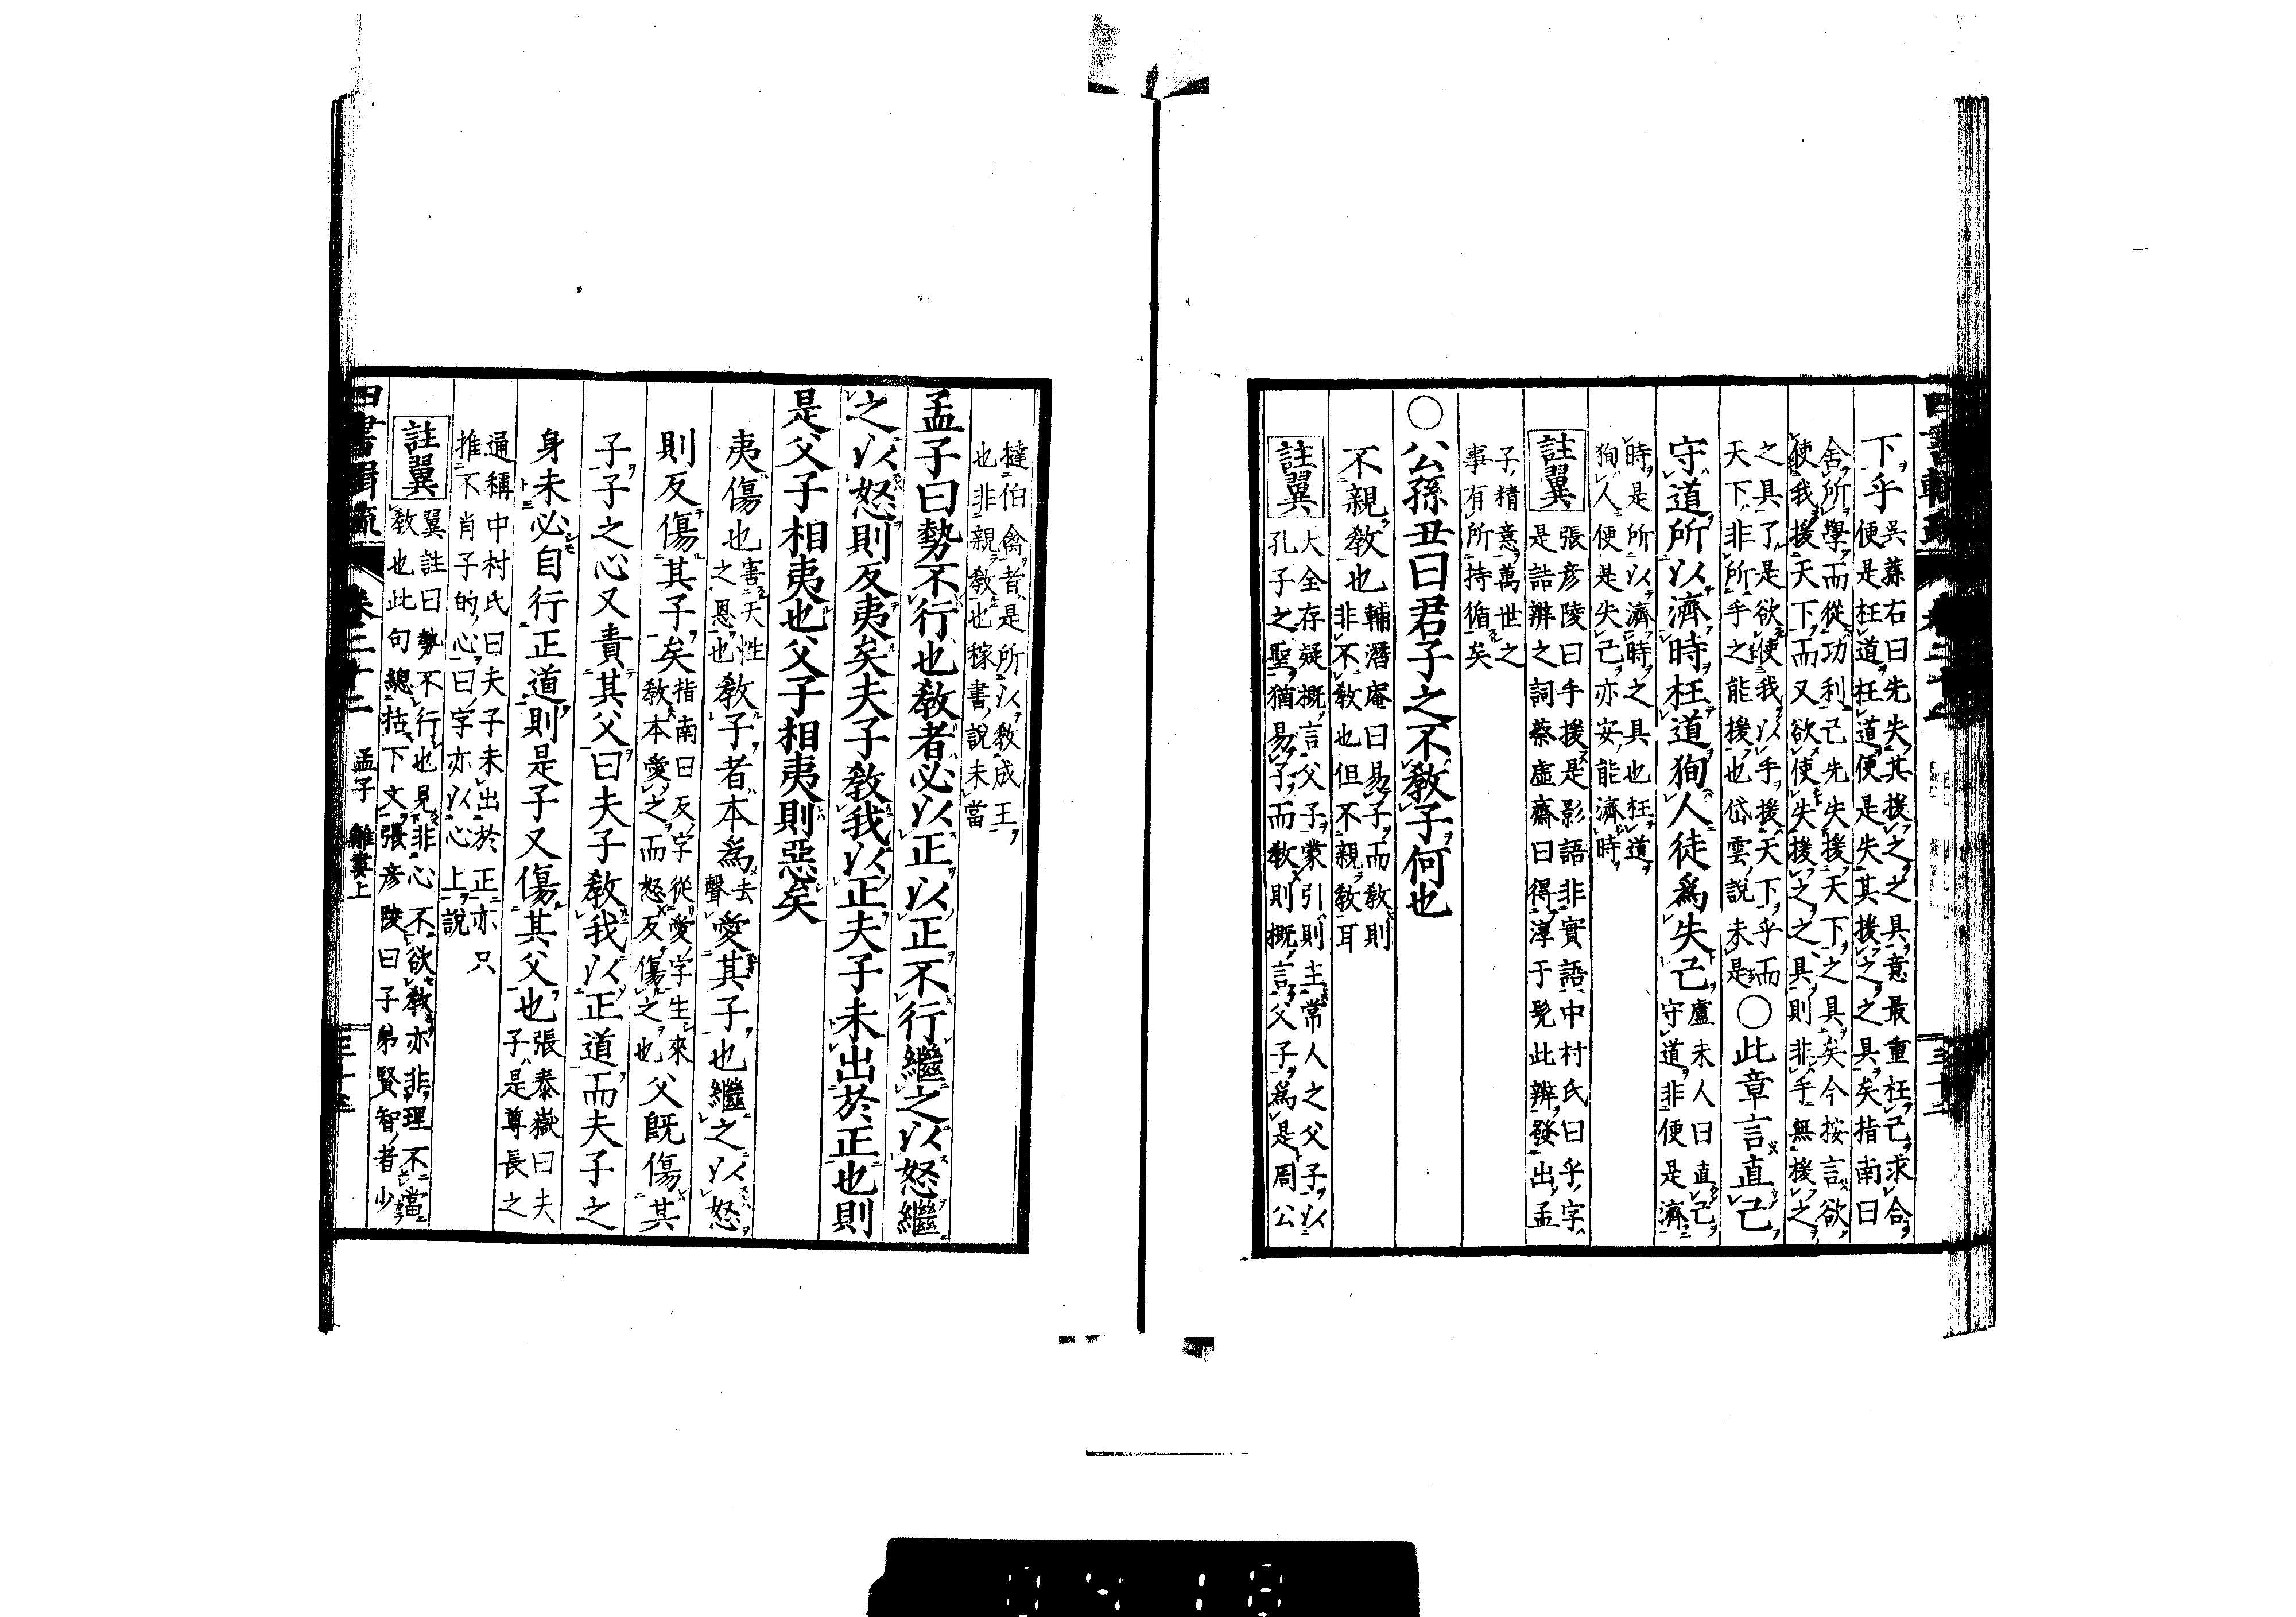 下乎 吳蓀右曰先失其援之之具意最重枉己求合
便是枉道枉道便是失其援之之具矣指南曰
舍所學而從功利己先失援天下之具矣今按言欲
使我援天下而又欲使失援之之具則非手無援之
之具了是欲使我以手援天下乎而
天下非所手之能援也岱雲說未是○此章言直己
守道所以濟時枉道狥人徒爲失己 盧未人曰直己
守道非便是濟
時是所以濟時之具也枉道
狥人便是失己亦安能濟時
註翼 張彥陵曰手援是影語非實語中村氏曰乎字
是詰辨之詞蔡虛齋曰得淳于髡此辨發出孟
子精意萬世之
事有所持循矣
○公孫丑曰君子之不敎子何也
不親敎也 輔潛庵曰易子而敎則
非不敎也但不親敎耳
註翼 大全存疑概言父子蒙引則主常人之父子以
孔子之聖猶易子而敎則概言父子爲是周公
撻伯禽者是所以敎成王
也非親敎也稼書說未當
孟子曰勢不行也敎者必以正以正不行繼之以怒繼
之以怒則反夷矣夫子敎我以正夫子未出於正也則
是父子相夷也父子相夷則惡矣
夷傷也 害天性
之恩也 敎子者本爲 去
聲 愛其子也繼之以怒
則反傷其子矣 指南曰反字從愛字生來
敎本愛之而怒反傷之也 父旣傷其
子子之心又責其父曰夫子敎我以正道而夫子之
身未必自行正道則是子又傷其父也 張泰嶽曰夫
子是尊長之
通稱中村氏曰夫子未出於正亦只
推不肖子的心曰字亦以心上說
註翼 翼註曰勢不行也見非心不欲敎亦非理不當
敎也此句總括下文張彥陵曰子弟賢智者少
四書輯疏 卷二十二 孟子 離婁上 三十三